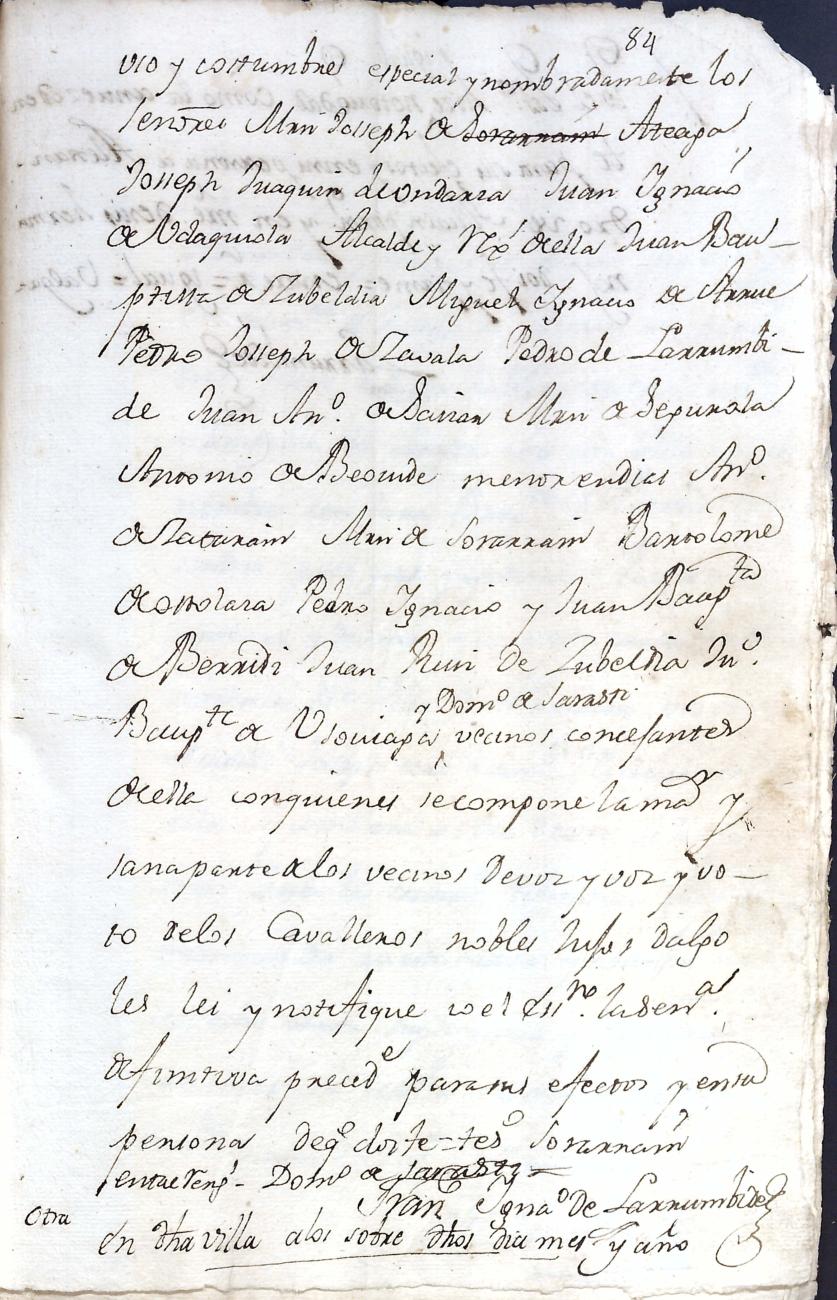 84
uso y costumbre especial y nombradamente los
señores Mrn Joseph de Sorarrain Ateaga
Joseph Juaquin de ondarra Juan Ignacio
de Udaquiola Alcalde y de ella Juan Bau-
ptista de Zubeldia Miguel Ignacio de Arrue
Pedro Joseph de Zavala Pedro de Larrumbi-
de Juan Anº. de Mrn de
Antonio de Beovide menor en dias Anº.
de Zatarain Mrn de Sorarrain Bartolome
de ostolaza Pedro Ignacio y Juan Baupta
de Berridi Juan Ruiz de Zubeldia Juº.
y Domº de Sarasti
Baupta de vecinos concejantes
de ella con quienes se compone la maor y
sana parte de los vecinos de voz y voz y vo-
to de los Cavalleros nobles hijos dalgo
les lei y notifique io el essno. la sena.
definitiva precede para sus efectos y en su
persona de qº doi fe = tesº Sorarrain
entre rengs - Domº de Sarasti =
Fran Ignaº De Larrumbide
Otra
en dha villa a los sobre dhos dia mes y año